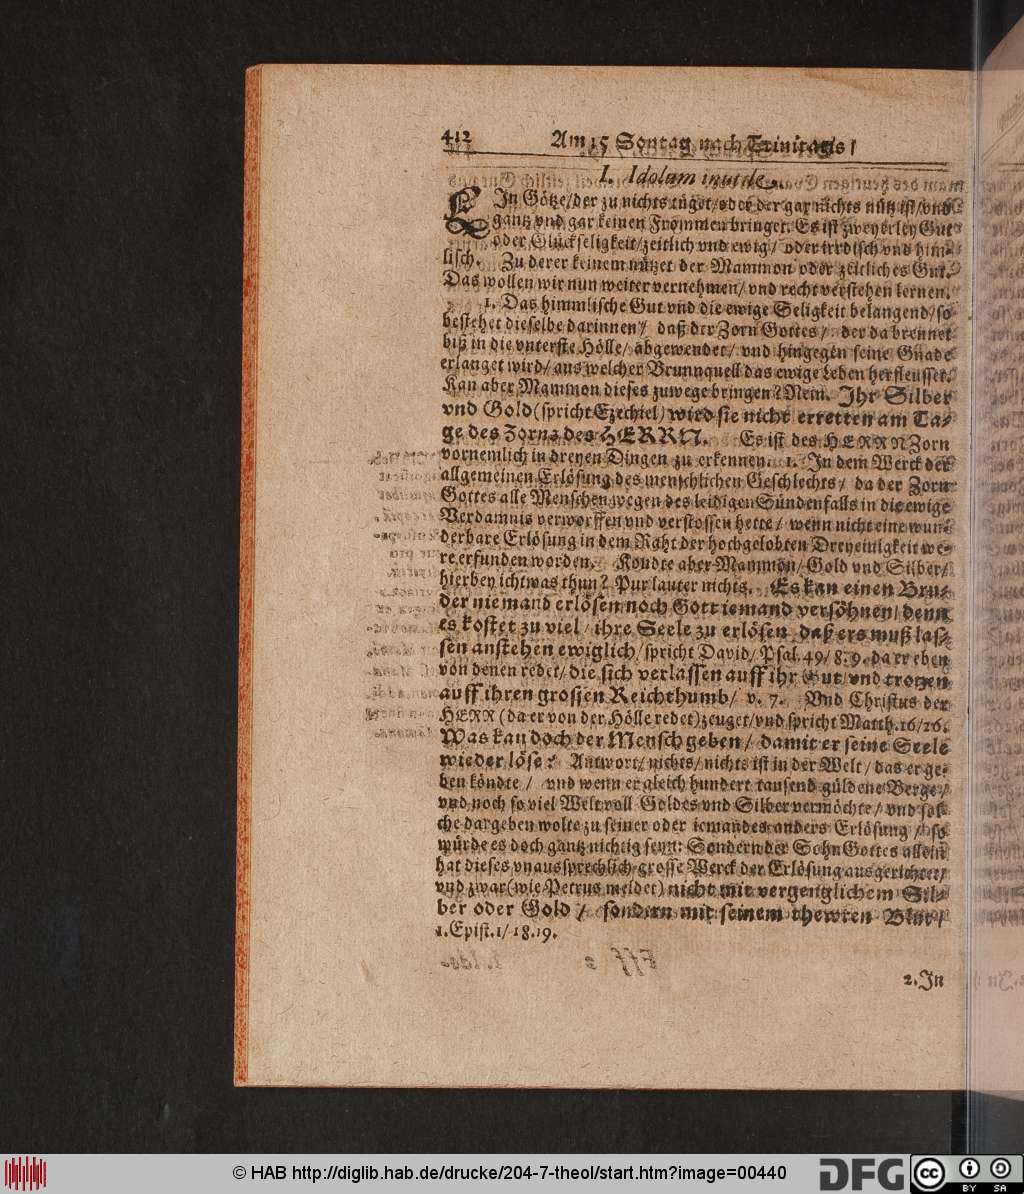 412 Am 15 Sontag nach Trinitatis/
I. Idolum inutile.
EIn Götze/der zu nichts tügst/oder der gar nichts nütz ist/vnd
gantz vnd gar keinen Frommen bringet. Es ist zweyerley Gut
oder Glückseligkeit/zeitlich vnd ewig/ oder irrdisch vnd him-
lisch. Zu derer keinem nützet der Mammon oder zeitliches Gut.
Das wollen wir nun weiter vernehmen/vnd recht verstehen lernen.
1. Das himmlische Gut vnd die ewige Seligkeit belangend/so
bestehet dieselbe darinnen/ daß der Zorn Gottes/ der da brennet
biß in die vnterste Hölle/ abgewendet/ vnd hingegen seine Gnade
erlanget wird/aus welcher Brunnquell das ewige Leben herfleusset.
Kan aber Mammon dieses zuwege bringen? Nein. Ihr Silber
vnd Gold (spricht Ezechiel) wird sie nicht erretten am Ta-
ge des Zorns des HERRN. Es ist des HERRN Zorn
vornemlich in dreyen Dingen zu erkennen. 1. In dem Werck der
allgemeinen Erlösung des menschlichen Geschlechts/ da der Zorn
Gottes alle Menschen wegen des leidigen Sündenfalls in die ewige
Verdamnis verworffen vnd verstossen hette/ wenn nicht eine wun-
derbare Erlösung in dem Raht der hochgelobten Dreyeinigkeit we-
re erfunden worden. Kondte aber Mammon/Gold vnd Silber/
hierbey ichtwas thun? Pur lauter nichts. Es kan einen Bru-
der niemand erlösen/noch Gott iemand versöhnen/ denn
es kostet zu viel/ ihre Seele zu erlösen daß ers muß las-
sen anstehen ewiglich/spricht David/Psal. 49/8.9. da er eben
von denen redet/die sich verlassen auff ihr Gut/vnd trotzen
auff ihren grossen Reichthumb/ v. 7. Vnd Christus der
HERR (da er von der Hölle redet) zeuget/vnd spricht Matth. 16/26.
Was kan doch der Mensch geben/ damit er seine Seele
wieder löse? Antwort/nichts/nichts ist in der Welt/das er ge-
ben köndte/ vnd wenn er gleich hundert tausend güldene Berge/
vnd noch so viel Welt voll Goldes vnd Silber vermöchte/ vnd sol-
che dargeben wolte zu seiner oder iemandes anders Erlösung/ so
würde es doch gantz nichtig seyn: Sondern der Sohn Gottes allein
hat dieses vnaussprechlich-grosse Werck der Erlösung ausgerichtet/
vnd zwar (wie Petrus meldet) nicht mit vergenglichem Sil-
ber oder Gold/ sondern mit seinem thewren Blut/
1. Epist. 1/18.19.
2. In
© HAB http://diglib.hab.de/drucke/204-7-theol/start.htm?image=00440
DFG
cc
BY SA